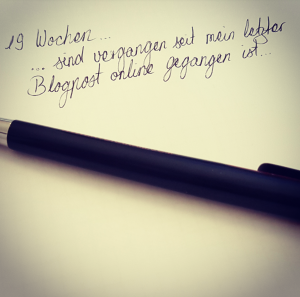 19 Wochen...
... sind vergangen seit mein letzter
Blogpost online gegangen ist...